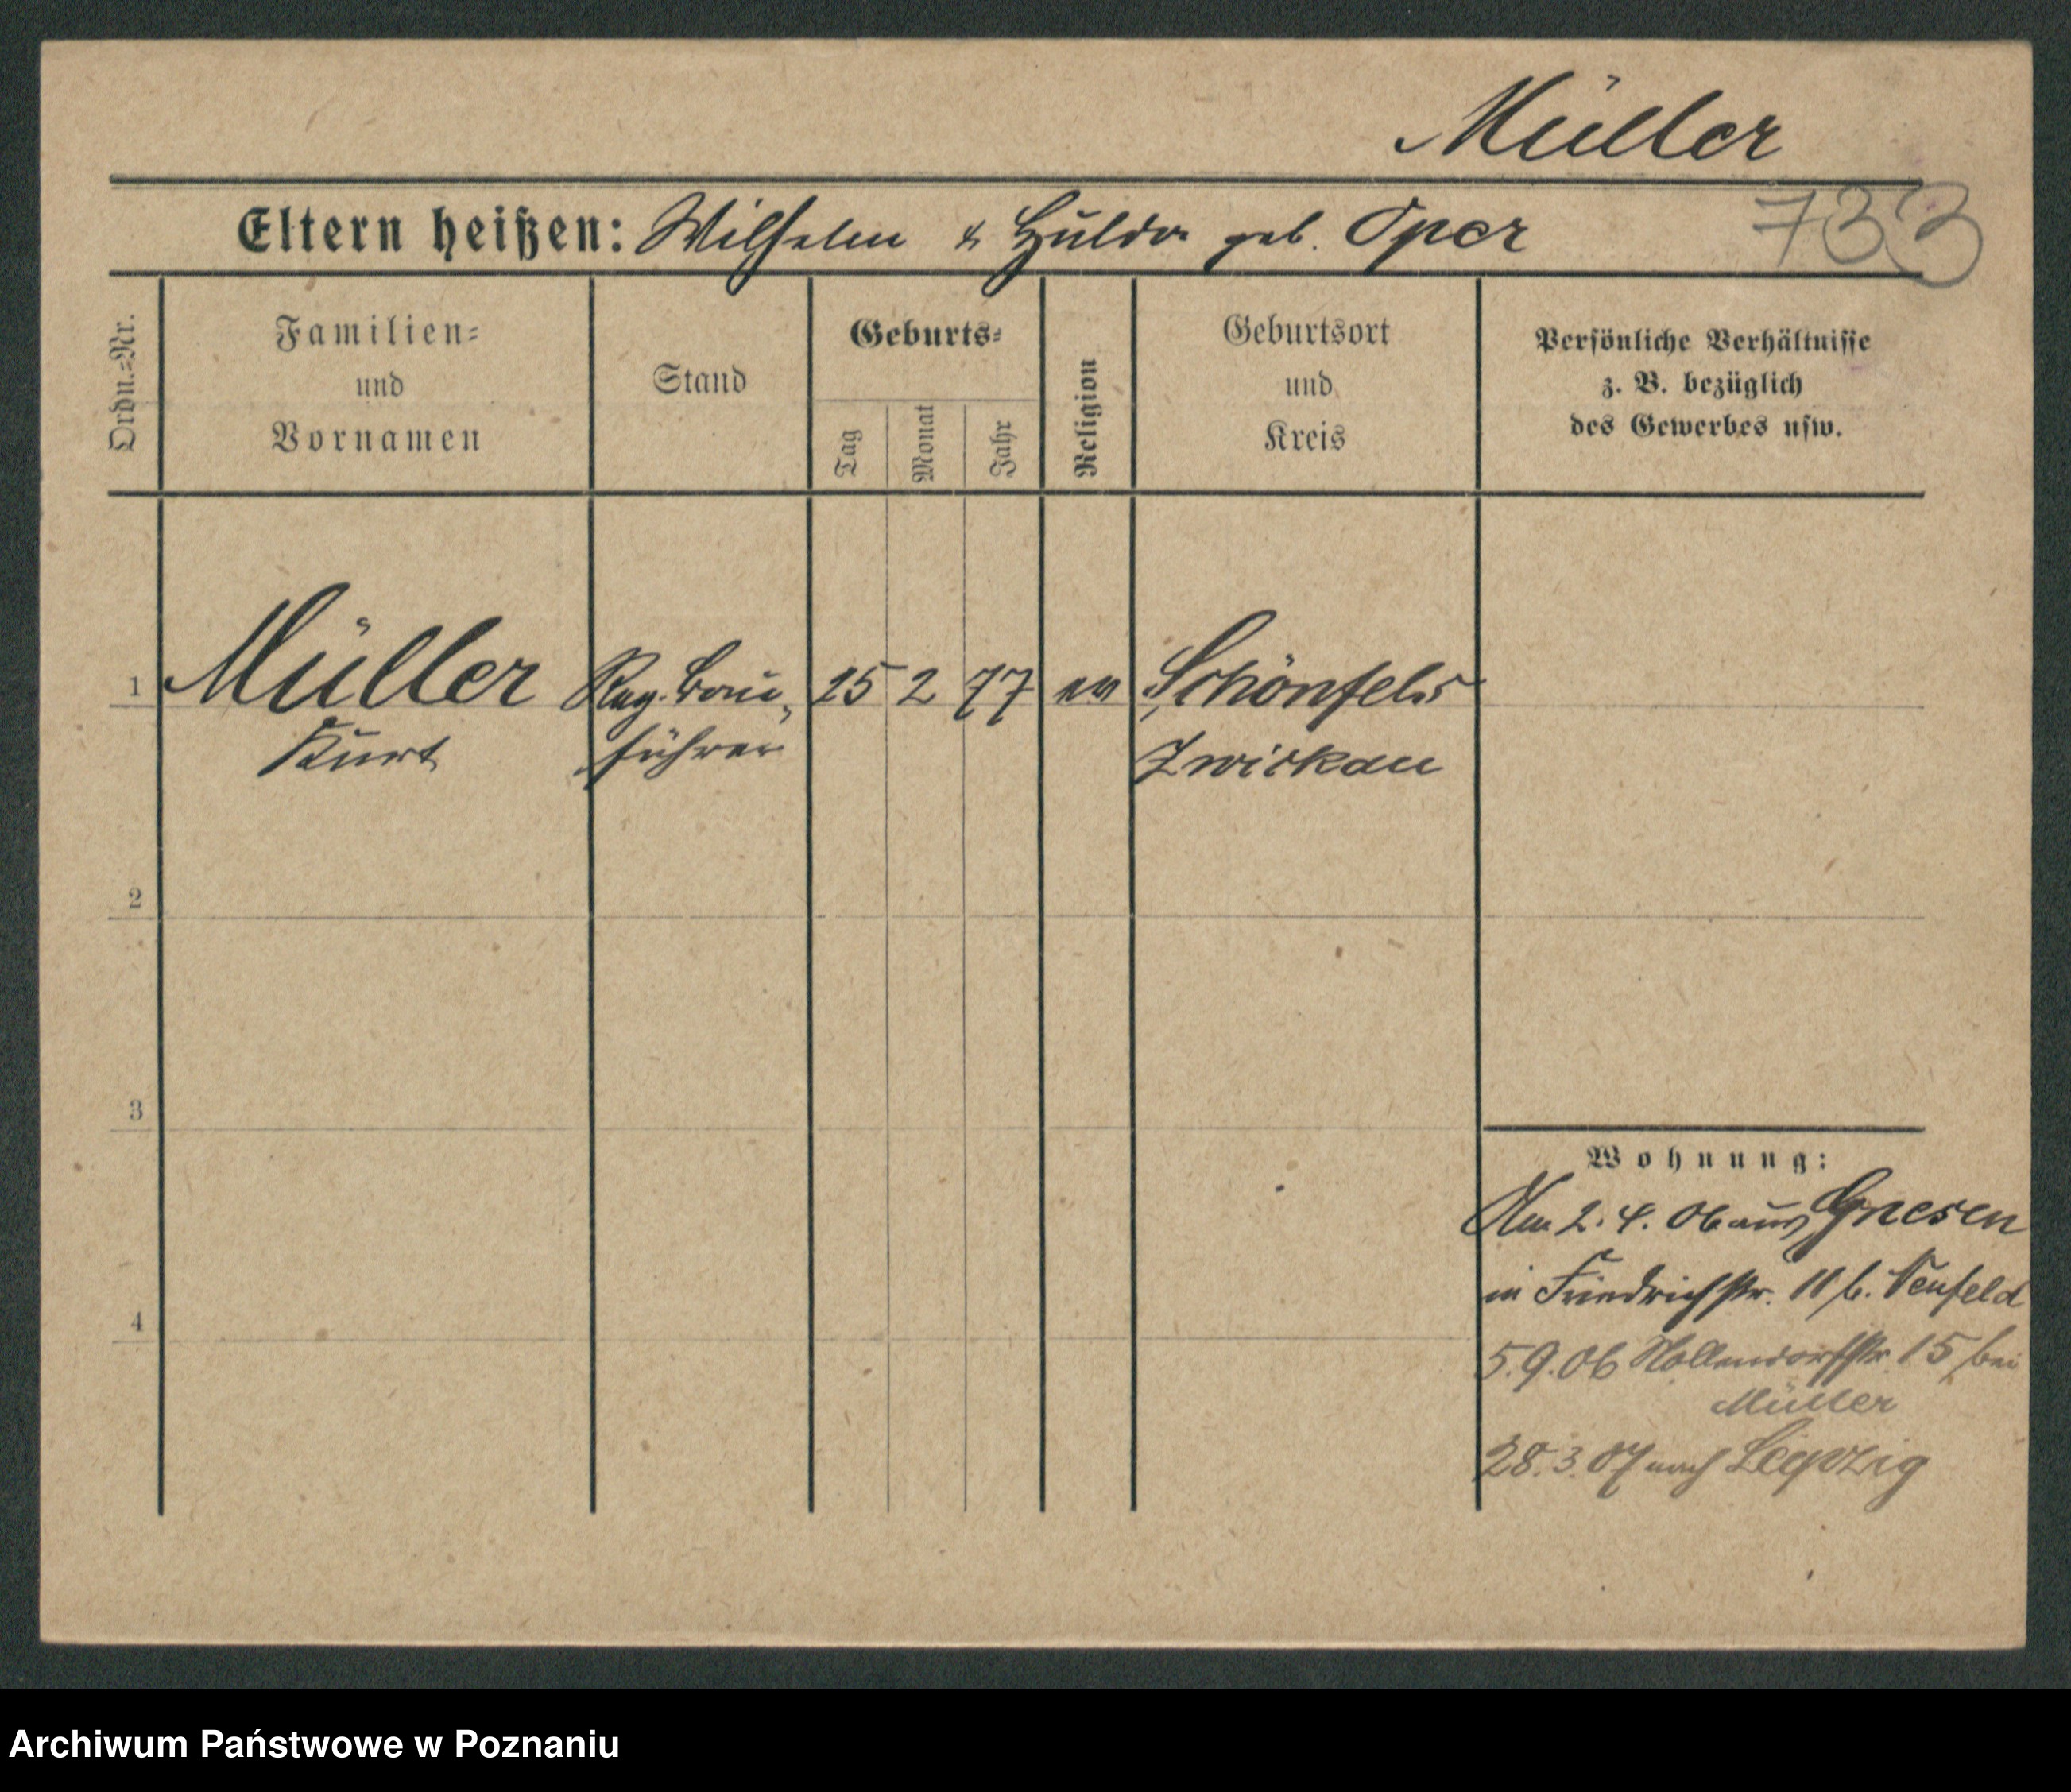 Müller
Eltern heißen: Wilhelm & Hulda geb. Oper
733
Ordn.=Nr.
Familien=
und
Vornamen
Stand
Geburts=
Tag
Monat
Jahr
Religion
Geburtsort
und
Kreis
Persönliche Verhältnisse
z. B. bezüglich
des Gewerbes usw.
1 Müller Reg. Bau- 25 2 77 ev Schönfels
Kurt führer Zwickau
2
3
4
Wohnung:
Am 2. 4. 06 aus Gnesen
in Friedrichstr. 11 b. Neufeld
5. 9. 06 15 bei
Müller
28. 3. 07 nach Leipzig
Archiwum Państwowe w Poznaniu